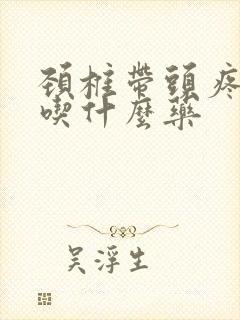 頚柱帶頭疼
喫什麼藥
吴浮生